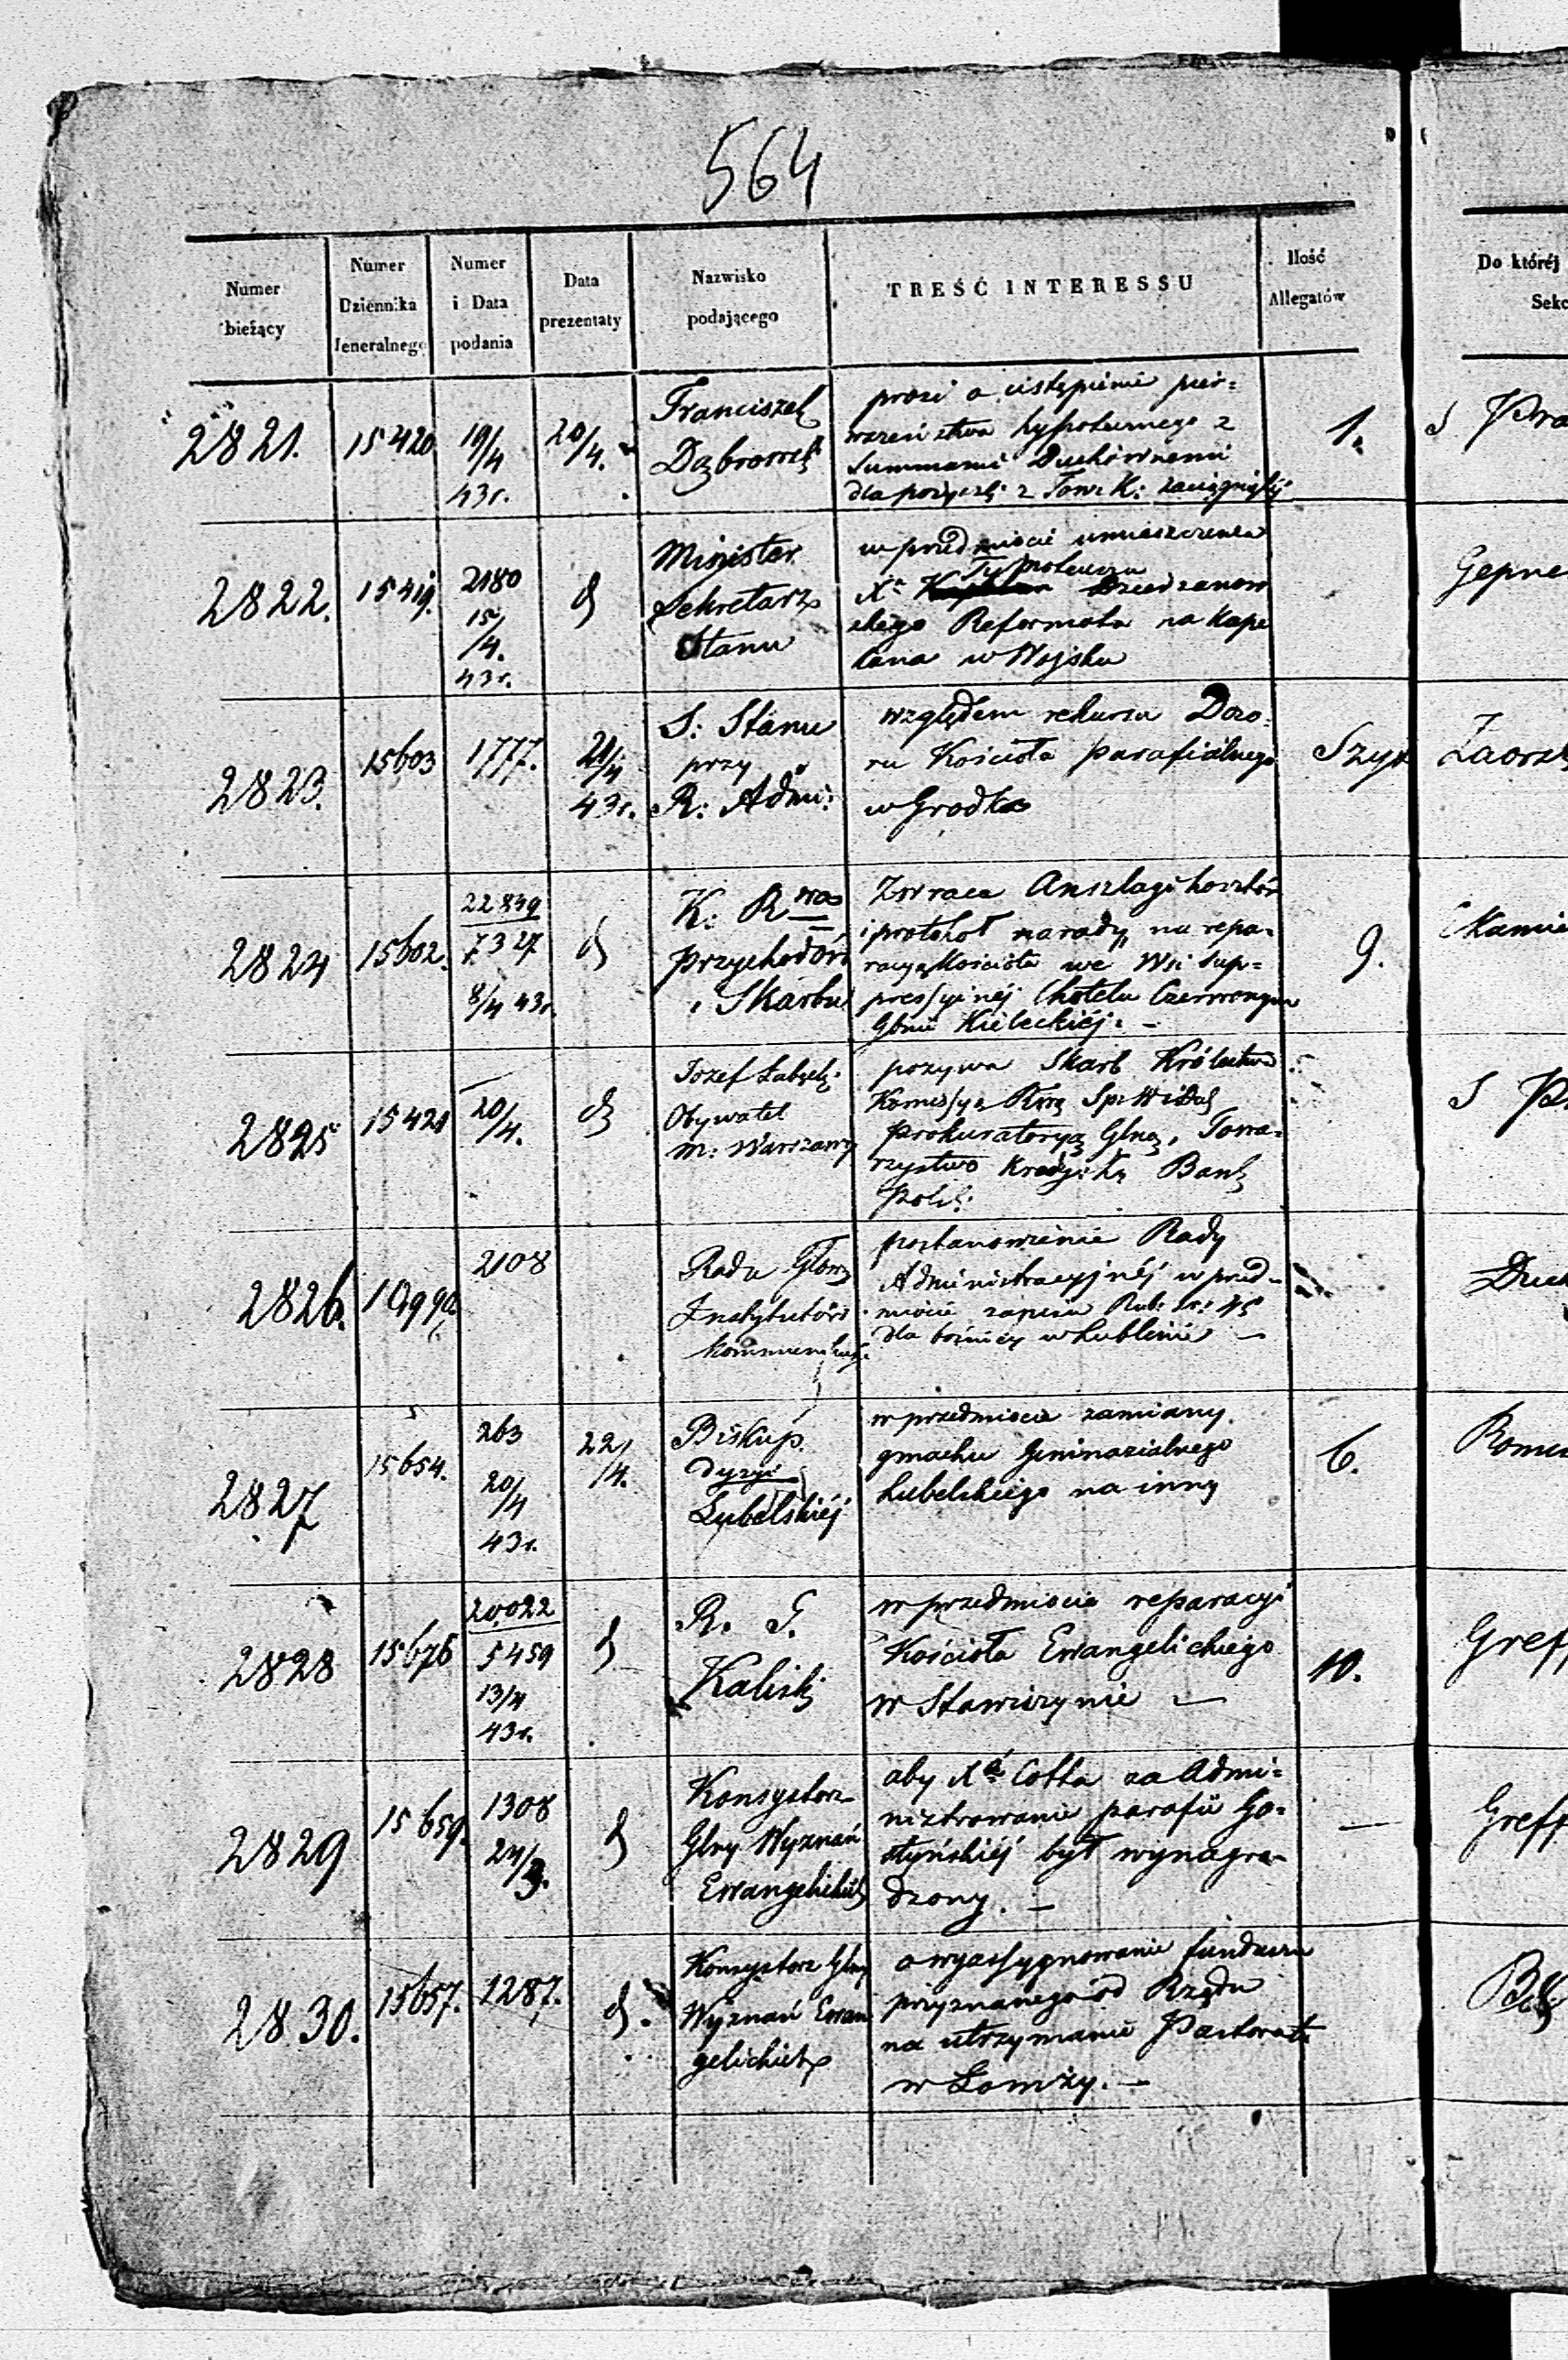 564
Numer bieżący
Numer Dziennika Jeneralnego
Numer i Data podania
Data prezentaty
Nazwisko podającego
TREŚĆ INTERESSU
Ilość Allegatów
Do któréj
Sekc
2821.
15420
19/4
43r.
20/4.
Franciszek
Dąbrowski
prosi o ustąpienie pier=
wszeństwa hypotecznego z
Summami Duchownemi
dla pożyczki z Tow: K: zaciągnięty
1.
S Pra
2822.
15419.
2180
15/4.
43r.
d
Minister
Sekretarz
Stanu
w przedmiocie umieszczenia
Xa Tymoteusza
skiego Reformata na Kape
lana w Wojsku
Gepne
2823.
15603
1777.
21/4
43r.
S: Stanu
przy
R: Admi:
względem rekursu Dozo
ru Kościoła parafialnego
w Grodku
Szyt
Zaorsk
2824
15602.
22839
7327
8/4 43r.
d
K: Rwa
przychodów
i Skarbu
Zwraca Anszlagi kosztów
i protokoł narady, na repa=
racyą Kościoła we Wsi Sup=
pressyinéj Chotelu Czerwonym
Gbnii Kieleckiéj. –
9.
Kamie
2825
15421
20/4.
d
Jozef Łabęcki
Obywatel
m: Warszawy
pozywa Skarb Królestwa
Komissyą Rwą Spr: W i Duch
prokuratoryą Glną, Towa=
rzystwo Kredyt: Bank
Polsk:
S
2826.
2108
Rada Głow
Instytutów
postanowienie Rady
Administracyjnéj w przed=
miocie zapisu Rub: sr: 45
dla bożnicy w Lublinie –
Duch
2827
15654.
263
20/4
43r.
22/4.
Biskup
dyecyi
Lubelskiéj
w przedmiocie zamiany
gmachu Gimnazialnego
Lubelskiego na inny
6.
Romu
2828
15676
20022
5459
13/4
43r.
d
R. G.
Kaliski
w przedmiocie reparacyi
Kościoła Ewangelickiego
w Stawiszynie –
10.
Greff
2829
15659.
1308
24/3.
d
Konsystorz
Glny Wyznań
Ewangelickich
aby Xa Cotta za Admi=
nistrowanie parafii Go=
styńskiéj był wynagro=
dzony. –
—
Greff
2830.
15657.
1287.
d.
Konsystorz Glny
Wyznań Ewan
gelickich
o wyassygnowanie funduszu
przyznanego od Rządu
na utrzymanie Pastoratu
w Łomży. –